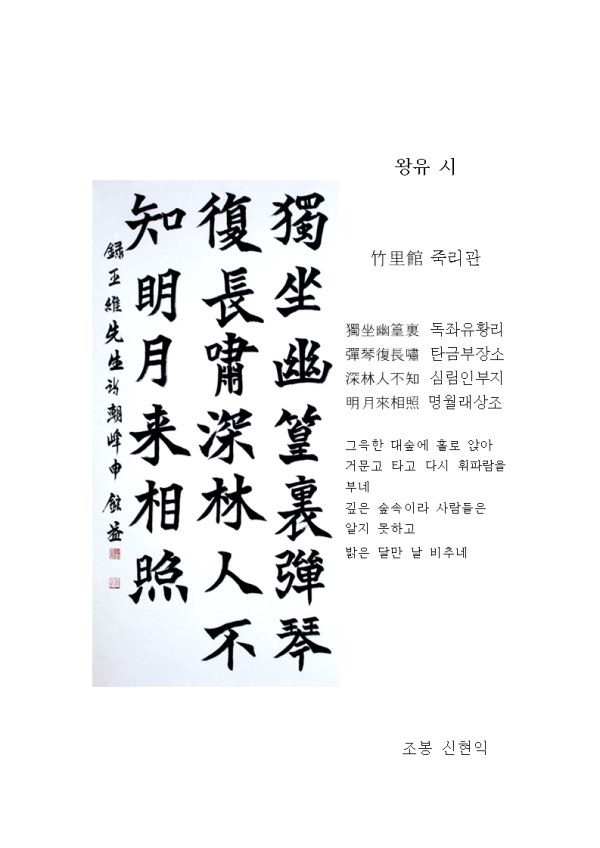 왕유 시
獨坐幽篁裏彈琴
復長嘯深林人不
知明月来相照
録王維先生詩朝峰申鉉益
竹里館 죽리관
獨坐幽篁裏 독좌유황리
彈琴復長嘯 탄금부장소
深林人不知 심림인부지
明月來相照 명월래상조
그윽한 대숲에 홀로 앉아
거문고 타고 다시 휘파람을
부네
깊은 숲속이라 사람들은
알지 못하고
밝은 달만 날 비추네
조봉 신현익